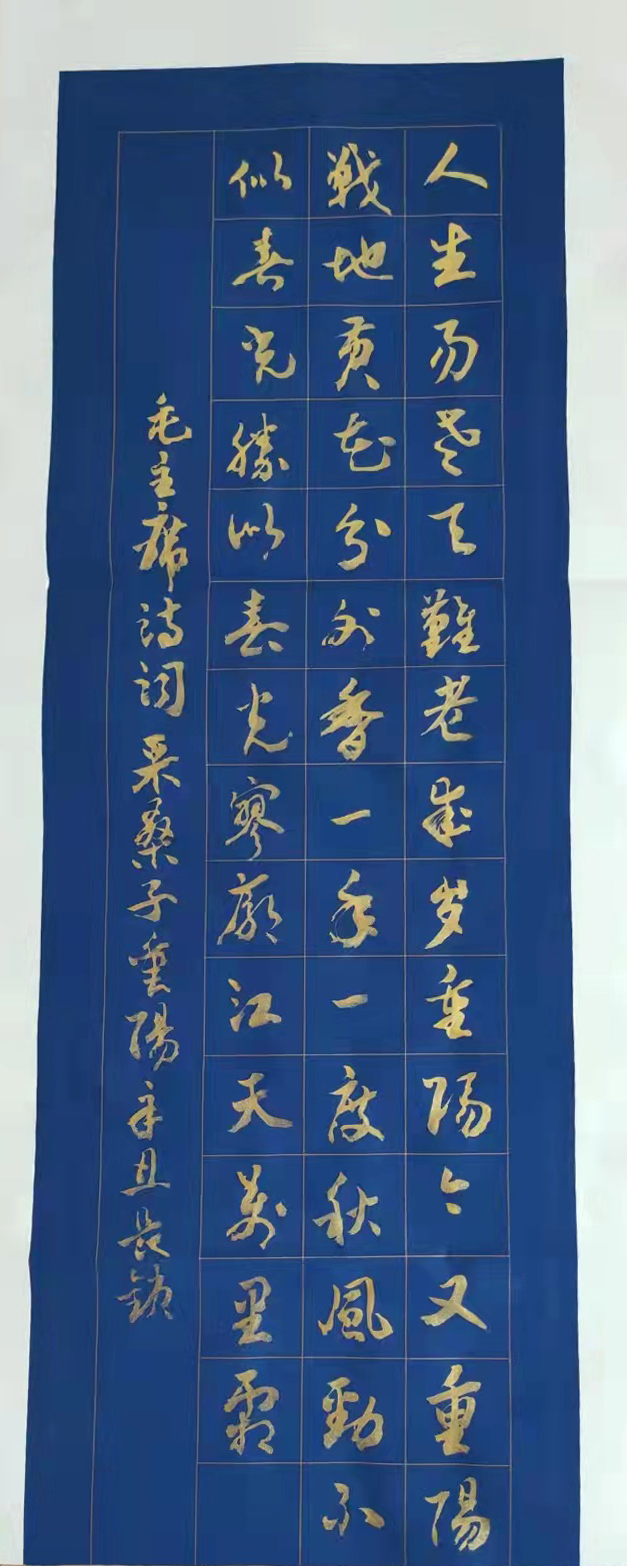 人生易老天難老歲岁重陽今又重陽
戰地黃花分外香一年一度秋風勁不
似春光勝似春光寥廓江天萬里霜
毛主席詩詞采桑子重陽辛丑長